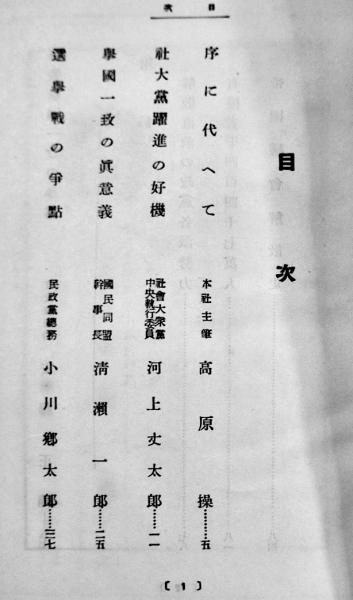 目次
目次
序に代へて 本社主筆 高原操……五
社大黨躍進の好機 社會大衆黨中央執行委員 河上丈太郎……一一
擧國一致の眞意義 國民同盟幹事長 淸瀨一郎……二五
選擧戰の爭點 民政黨總務 小川鄕太郎……三七
〔1〕